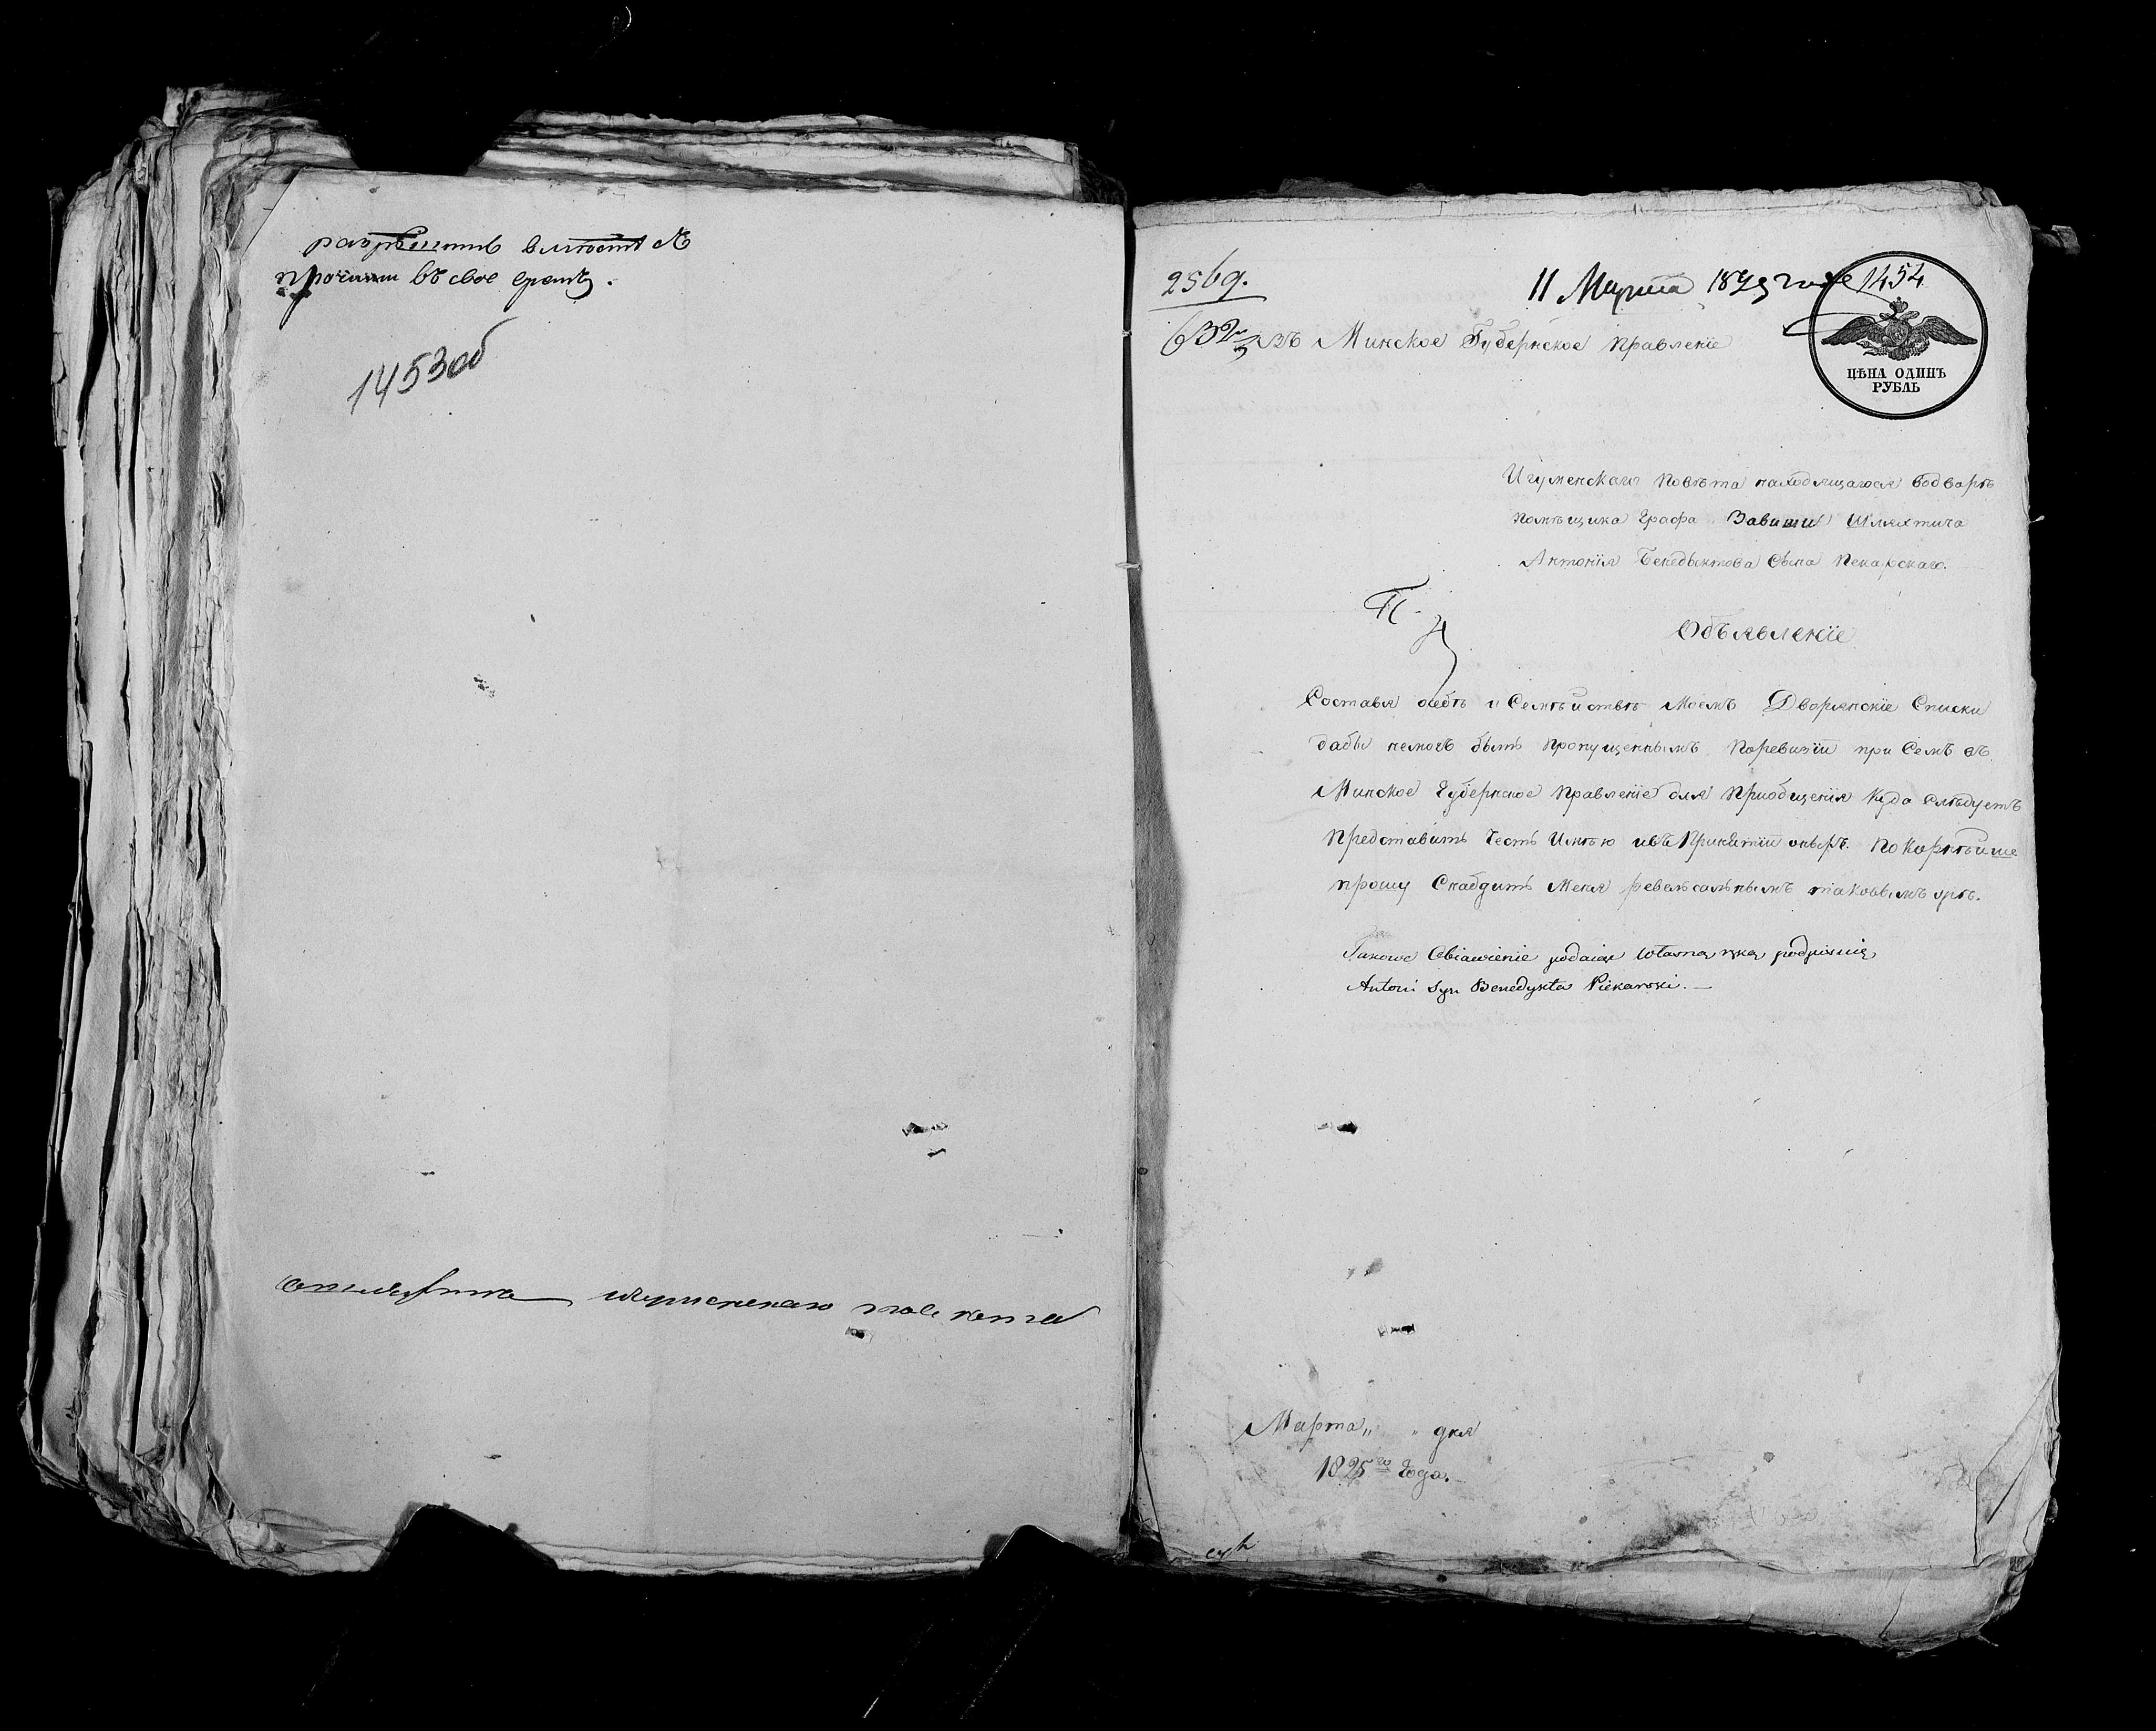 разрѣшить вмѣстѣ съ
прочими въ свое время.
1453об
Игуменскаго повета
2569.
11 Марта 1825 года
1454
632
Въ Минское Губернское Правленіе
ЦѢНА ОДИНЪ
РУБЛЬ
Игуменскаго Повѣта находящагося водворѣ
Помѣщика Графа Завиши Шляхтича
Антонія Бенедыктова Сына Пекарскаго.
Объявленіе
Составя осебѣ и Семѣйствѣ Моемъ Дворянскіе Списки
дабы немогъ быть пропущеннымъ Поревизіи при Семъ въ
Минское Губернское Правленіе для Приобщенія Куда Слѣдуетъ
Представить Честь Имѣю ивъ Принятіи оныхъ Покорнѣише
прошу Снабдить Меня реверсальнымъ таковымъ
Takowe Obiawienie podaiąc własną ręką podpisuię
Antoni syn Benedykta Piekarski. —
Марта „ „ дня
1825го Года.